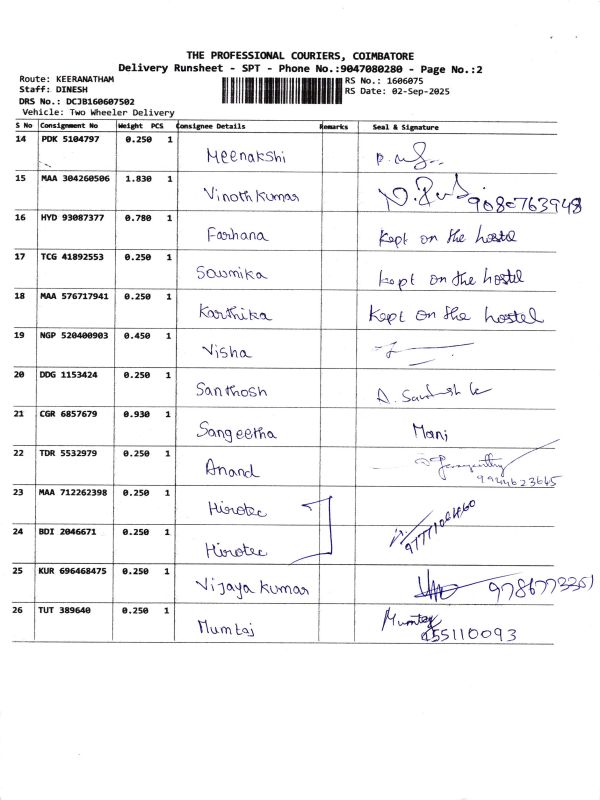 THE PROFESSIONAL COURIERS, COIMBATORE
Delivery Runsheet - SPT - Phone No.:9047080280 - Page No.:2
Route: KEERANATHAM RS No.: 1606075
Staff: DINESH RS Date: 02-Sep-2025
DRS No.: DCJB160607502
Vehicle: Two Wheeler Delivery
S No Consignment No Weight PCS Consignee Details Remarks Seal & Signature
14 PDK 5104797 0.250 1 Meenakshi
15 MAA 304260506 1.830 1 Vinoth Kumar 9080763948
16 HYD 93087377 0.780 1 Farhana Kept on the hostel
17 TCG 41892553 0.250 1 Sowmika kept on the hostel
18 MAA 576717941 0.250 1 Karthika Kept on the hostel
19 NGP 520400903 0.450 1 Visha
20 DDG 1153424 0.250 1 Santhosh
21 CGR 6857679 0.930 1 Sangeetha Mani
22 TDR 5532979 0.250 1 Anand 9944623665
23 MAA 712262398 0.250 1 Hirotec
24 BDI 2046671 0.250 1 Hirotec
25 KUR 696468475 0.250 1 Vijaya Kumar 9786773351
26 TUT 389640 0.250 1 Mumtaj Mumtaj